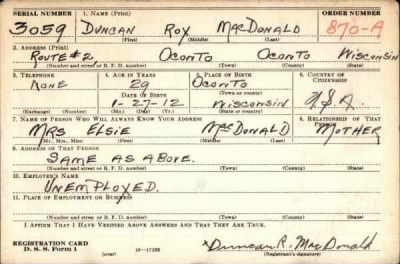 SERIAL NUMBER 1. NAME (Print) ORDER NUMBER
3059 DUNCAN ROY MACDONALD 870-A
(First) (Middle) (Last)
2. ADDRESS (Print)
ROUTE #2 OCONTO OCONTO WISCONSIN
(Number and street or R. F. D. number) (Town) (County) (State)
3. TELEPHONE 4. AGE IN YEARS 5. PLACE OF BIRTH 6. COUNTRY OF CITIZENSHIP
NONE 29 OCONTO
DATE OF BIRTH (Town or county)
1-27-12 WISCONSIN U.S.A.
(Exchange) (Number) (Mo.) (Day) (Yr.) (State or country)
7. NAME OF PERSON WHO WILL ALWAYS KNOW YOUR ADDRESS 8. RELATIONSHIP OF THAT PERSON
MRS ELSIE MACDONALD MOTHER
(Mr., Mrs., Miss) (First) (Middle) (Last)
9. ADDRESS OF THAT PERSON
SAME AS ABOVE.
(Number and street or R. F. D. number) (Town) (County) (State)
10. EMPLOYER'S NAME
UNEMPLOYED.
11. PLACE OF EMPLOYMENT OR BUSINESS
(Number and street or R. F. D. number) (Town) (County) (State)
I AFFIRM THAT I HAVE VERIFIED ABOVE ANSWERS AND THAT THEY ARE TRUE.
REGISTRATION CARD
D. S. S. Form 1 (over) 16-17105 Duncan R. MacDonald
(Registrant's signature)